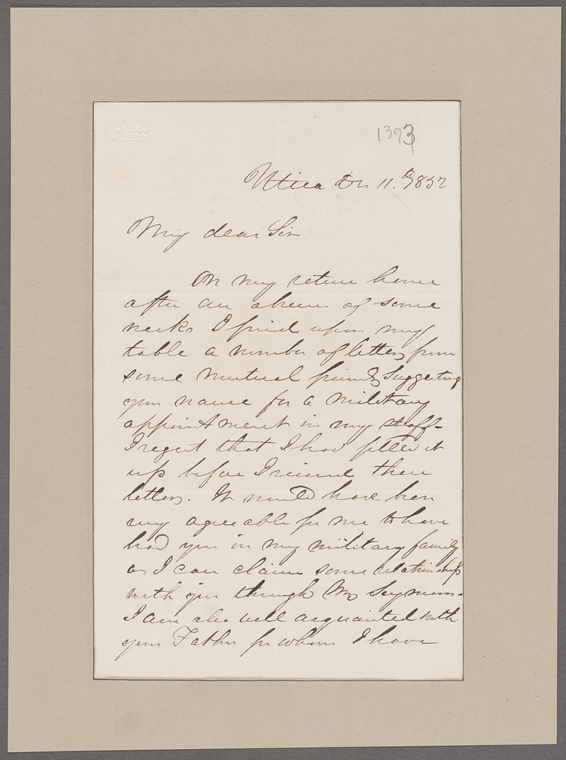 1393
Utica Dec 11. 1852
My dear Sir
On my return home
after an absence of some
weeks I find upon my
table a number of letters from
some mutual friends suggesting
your name for a military
appointment in my staff-
I regret that I had filled it
up before I received these
letters. It would have been
very agreeable for me to have
had you in my military family
as I can claim some relationship
with you through Mrs Seymour.
I am also well acquainted with
your Father for whom I have